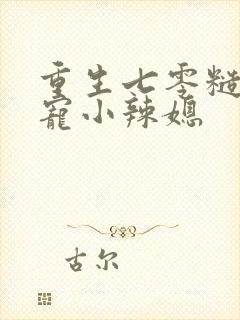 重生七零糙
宠小辣媳
古尔